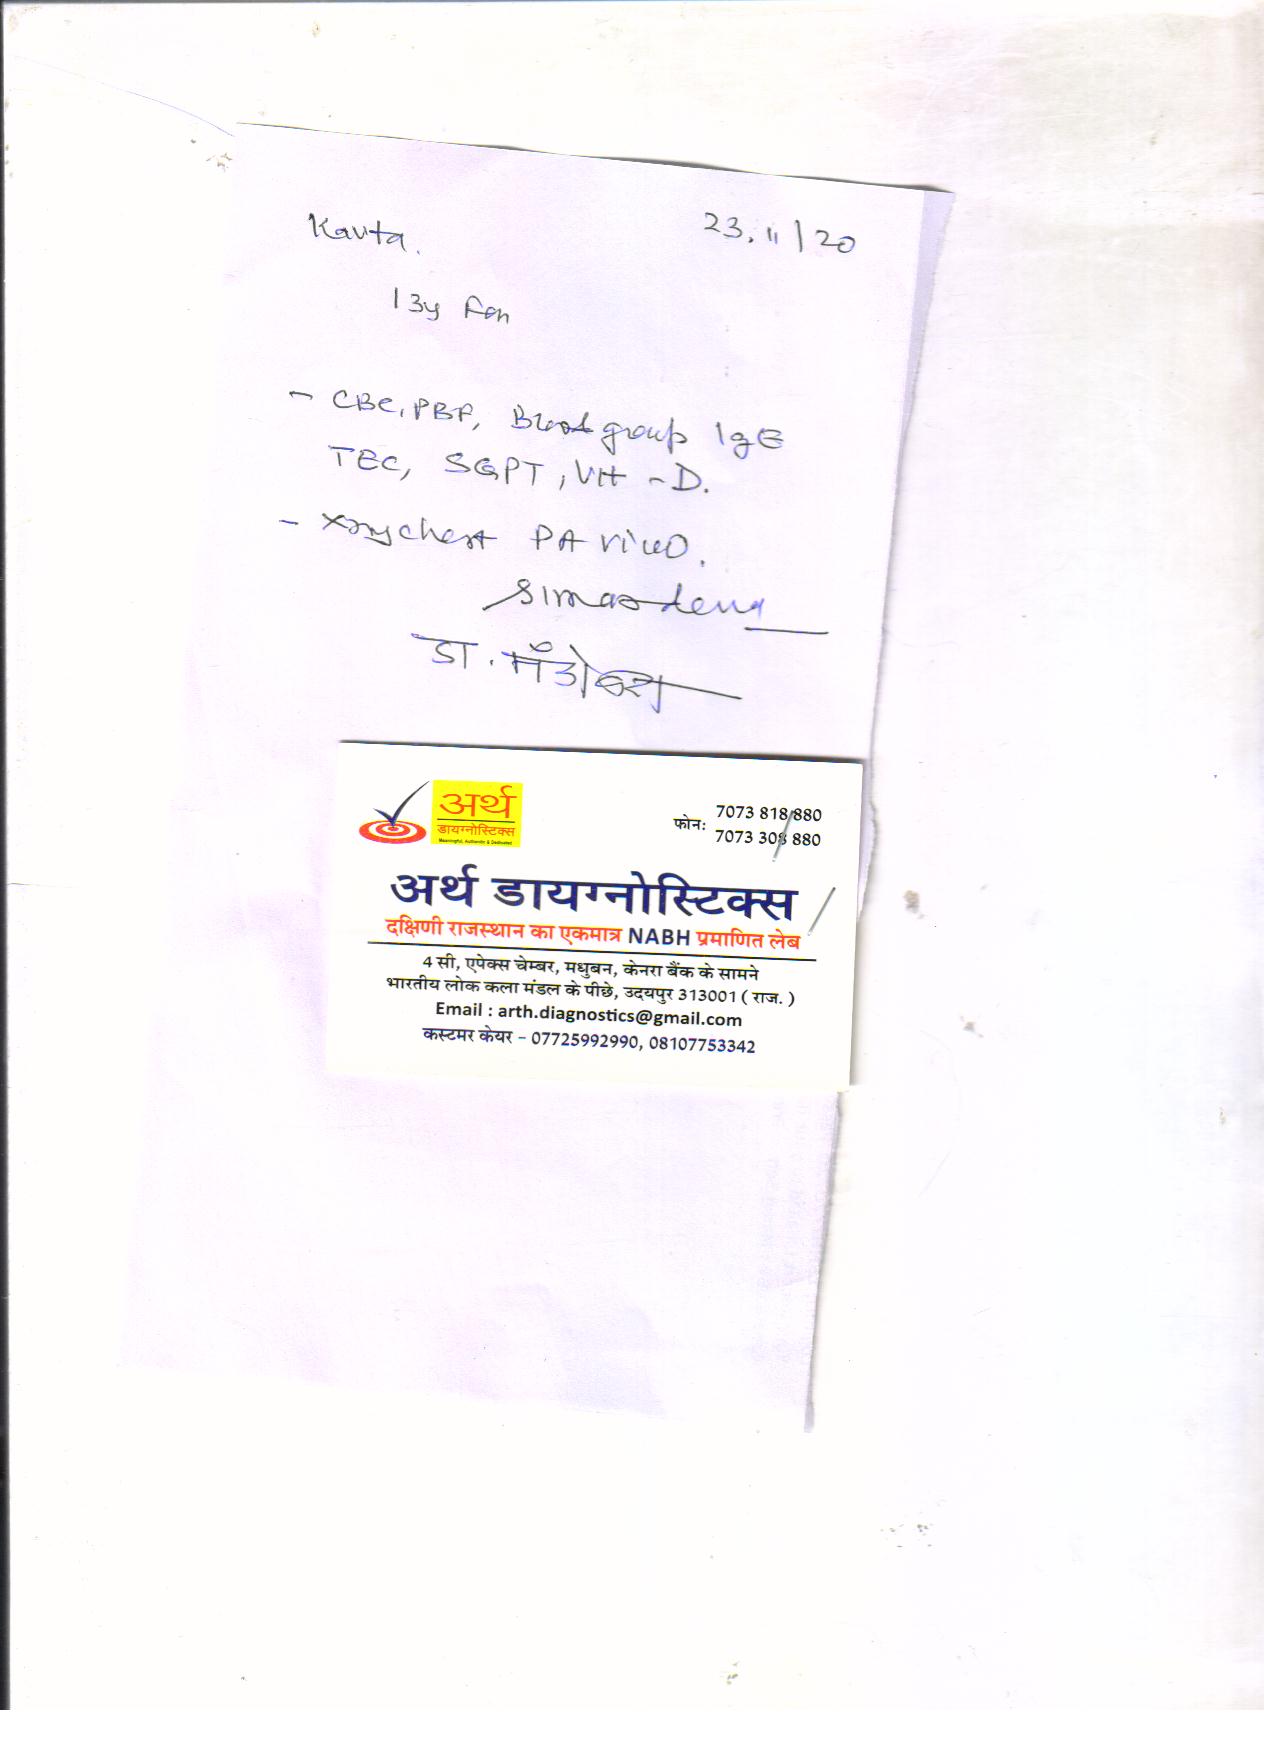 Kavita.
23.11/20
13y Fem
- CBC, PBF, Blood group IgE
TEC, SGPT, Vit - D.
- Xray chest PA view.
डा.
अर्थ
डायग्नोस्टिक्स
Meaningful, Authentic & Dedicated
फोन: 7073 818 880
7073 308 880
अर्थ डायग्नोस्टिक्स
दक्षिणी राजस्थान का एकमात्र NABH प्रमाणित लेब
4 सी, एपेक्स चेम्बर, मधुबन, केनरा बैंक के सामने
भारतीय लोक कला मंडल के पीछे, उदयपुर 313001 ( राज. )
Email : arth.diagnostics@gmail.com
कस्टमर केयर - 07725992990, 08107753342